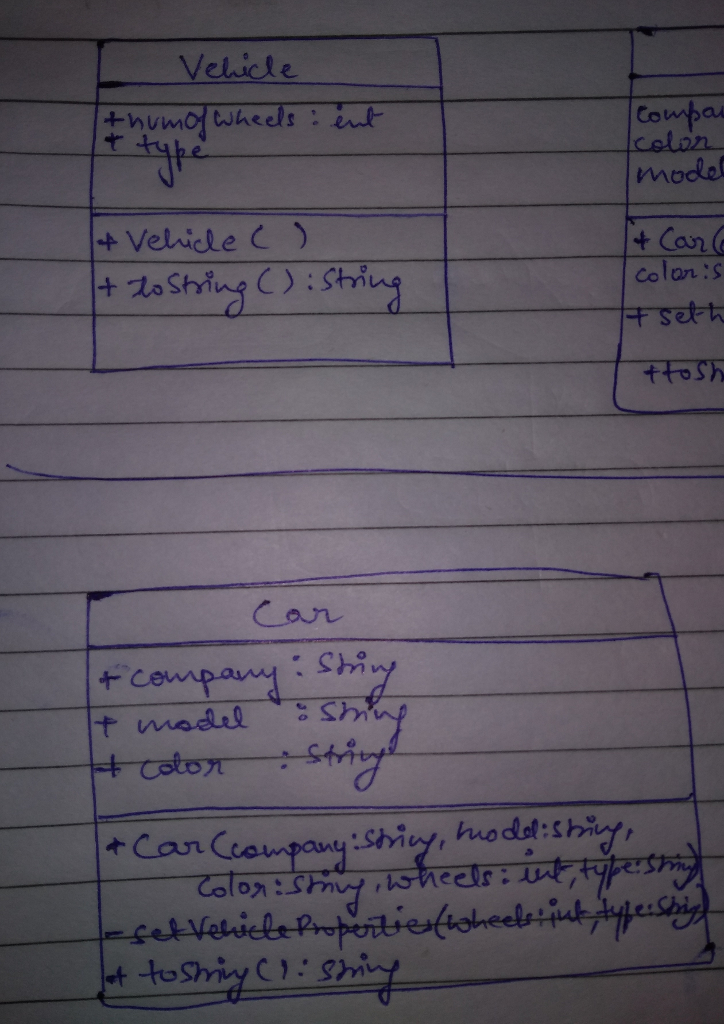 Vehicle
+numofwheels : int
+ type
+ Vehicle ( )
+ toString ( ) : String
compa
color
model
+ Car (
color:s
+ set
+toSt
Car
+ company : String
+ model : String
+ color : String
+ Car (company:String, model:String,
color:String, wheels: int, type:String)
- set Vehicle Properties(wheels:int, type:String)
+ toString ( ) : String